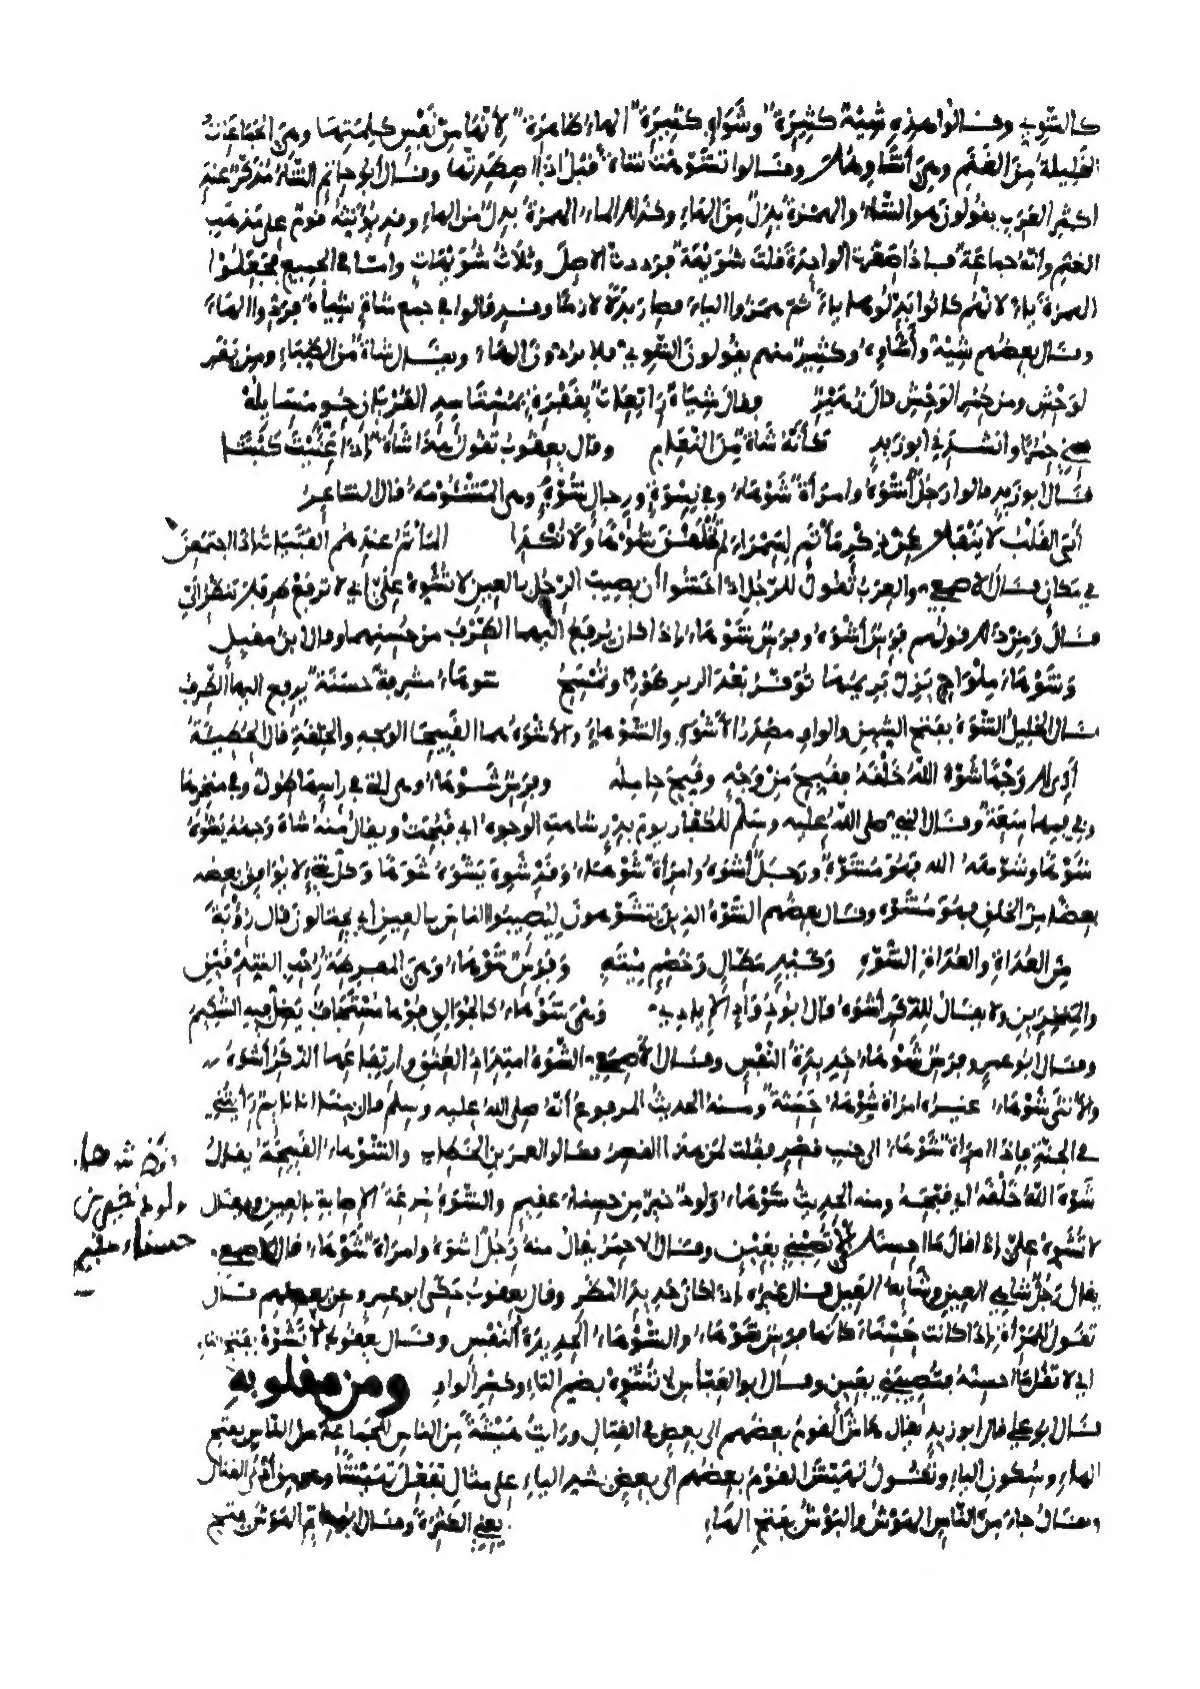 كالشوي وقالوا هذه شية كثيرة وشواء كثيرة الهاء ظاهرة لأنها من نفس كلمتها وهي الجماعات
القليلة من الغنم وهي وقالوا تشوهت شاة قبل إذا صدتها وقال أبو حاتم الشاة مذكر عند
أكثر العرب يقولون هو الشاة والهمزة بدل من الهاء وكذلك الماء الهمزة بدل من الهاء وقد يؤنثه قوم على مذهب
الغنم وأنه جماعة فإذا صغرت الواحدة قلت شويهة فرددت الأصل وثلاث شويهات وأما في الجميع فجعلوا
الهمزة ياء لأنهم كانوا يبدلونها ياء ثم همزوا الياء فصار بدلا لازما وقد قالوا في جمع شاة شياه فردوا الهاء
وقال بعضهم شية وكثير منهم يقولون الشوي فلا يردون الهاء ويقال شاة من الظباء ومن بقر
الوحش ومن حمر الوحش قال زهير وقال شياه راتعات بقفرة بمستأسد القريان حو مسايله
يعني حمرا وأنشد في أبو زيد كأنه شاة من النعام وقال يعقوب تقول هذا شاة إذا عنيت كبشا
قال أبو زيد قالوا رجل أشوه وامرأة شوهاء وفي نسوة ورجال شوه وهي المشئومة قال الشاعر
أنى القلب لا ينفك عن ذكر مأتم لسمراء لم تخلق شوها ولا نكدا المأتم عندهم الفتيات إذا اجتمعن
في مكان قال الأصمعي والعرب تقول للرجل إذا اختشوا أن يصيب الرجل بالعين لا تشوه علي أي لا ترفع طرفك تنظر إلي
قال ومن ذلك قولهم فرس أشوه وفرس شوهاء إذا كان يرفع إليهما الطرف من حسنهما وقال ابن مقبل
وشوهاء ملواح شوهاء مشرفة حسنة يرفع إليها الطرف
قال الخليل الشوه بفتح الشين والواو مصدر الأشوه والشوهاء والأشوه هما القبيحا الوجه والخلقة قال الحطيئة
أرى لك وجها شوه الله خلقه فقبح من وجه وقبح حامله وفرس شوهاء وهي التي في رأسها طول وفي منخرها
وفي فيها سعة وقال النبي صلى الله عليه وسلم للكفار يوم بدر شاهت الوجوه أي قبحت ويقال منه شاه وجهه يشوه
شوها وشوهه الله فهو مشوه ورجل أشوه وامرأة شوهاء وقد شوه يشوه شوها وكل شيء لا يوافق بعضه
بعضا من الخلق فهو مشوه وقال بعضهم الشوه الذين يتشوهون ليصيبوا الناس بالعين أي يحتالون قال رؤبة
من العداة والعداة الشوه وكيد مطال وخصم مبده وفرس شوهاء وهي المعرضة رأسا الشديدة نفس
والمنخرين ولا يقال للذكر أشوه قال أبو دؤاد الإيادي وهي شوهاء كالجوالق فوها مستجاف يضل فيه الشكيم
وقال أبو عمرو فرس شوهاء حديدة النفس وقال الأصمعي الشوه امتداد العنق وارتفاعها الذكر أشوه
والأنثى شوهاء غيره امرأة شوهاء حسنة ومنه الحديث المرفوع أنه صلى الله عليه وسلم قال بينا أنا نائم رأيتني
في الجنة فإذا امرأة شوهاء إلى جنب قصر فقلت لمن هذا القصر فقالوا لعمر بن الخطاب والشوهاء القبيحة يقال
شوه الله خلقه أي قبحه ومنه الحديث شوهاء ولود خير من حسناء عقيم والشوه سرعة الإصابة بالعين ويقال
لا تشوه علي إذا قال ما أحسنك أي تصبني بعين وقال الأحمر يقال منه رجل أشوه وامرأة شوهاء قال الأصمعي
يقال رجل شائه العين وقال غيره إذا كان حديد النظر وقال يعقوب حكى أبو عمرو عن بعضهم قال
تقول للمرأة إذا كانت حسناء كأنها فرس شوهاء والشوهاء الحديدة النفس وقال يعقوب لا تشوه بفتح التاء
أي لا تقل ما أحسنه فتصيبني بعين وقال أبو العباس لا تشوه بضم التاء وكسر الواو ومن مقلوبه
قال أبو علي قال أبو زيد يقال هاش القوم بعضهم إلى بعض في القتال ورأيت هيشة من الناس للجماعة من الناس بفتح
الهاء وسكون الياء وتقول تهيش القوم بعضهم إلى بعض شد الياء على مثال تفعل تهيشا وهو القتال
ويقال جاء من الناس الهوش والبوش بفتح الهاء يعني الكثرة وقال أبو حاتم الهوش بفتح
شوهاء
ولود خير من
حسناء عقيم